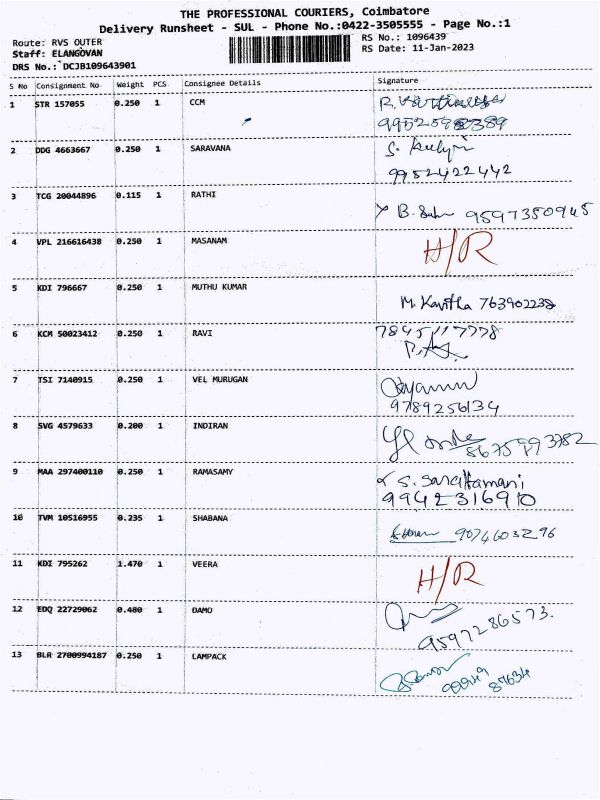 THE PROFESSIONAL COURIERS, Coimbatore
Delivery Runsheet - SUL - Phone No.:0422-3505555 - Page No.:1
Route: RVS OUTER
RS No.: 1096439
Staff: ELANGOVAN
RS Date: 11-Jan-2023
DRS No.: DCJB109643901
S No Consignment No Weight PCS Consignee Details Signature
1 STR 157055 0.250 1 CCM
2 DDG 4663667 0.250 1 SARAVANA
9952422442
3 TCG 20044896 0.115 1 RATHI
9597350945
4 VPL 216616438 0.250 1 MASANAM H/R
5 KDI 796667 0.250 1 MUTHU KUMAR
M. Kavitha 763902238
6 KCM 50023412 0.250 1 RAVI
7 TSI 7140915 0.250 1 VEL MURUGAN
9789256134
8 SVG 4579633 0.200 1 INDIRAN
9 MAA 297400110 0.250 1 RAMASAMY
9942316910
10 TVM 10516955 0.235 1 SHABANA
9074603296
11 KDI 795262 1.470 1 VEERA H/R
12 EDQ 22729062 0.480 1 DAMO
9597286573.
13 BLR 2700994187 0.250 1 LAMPACK